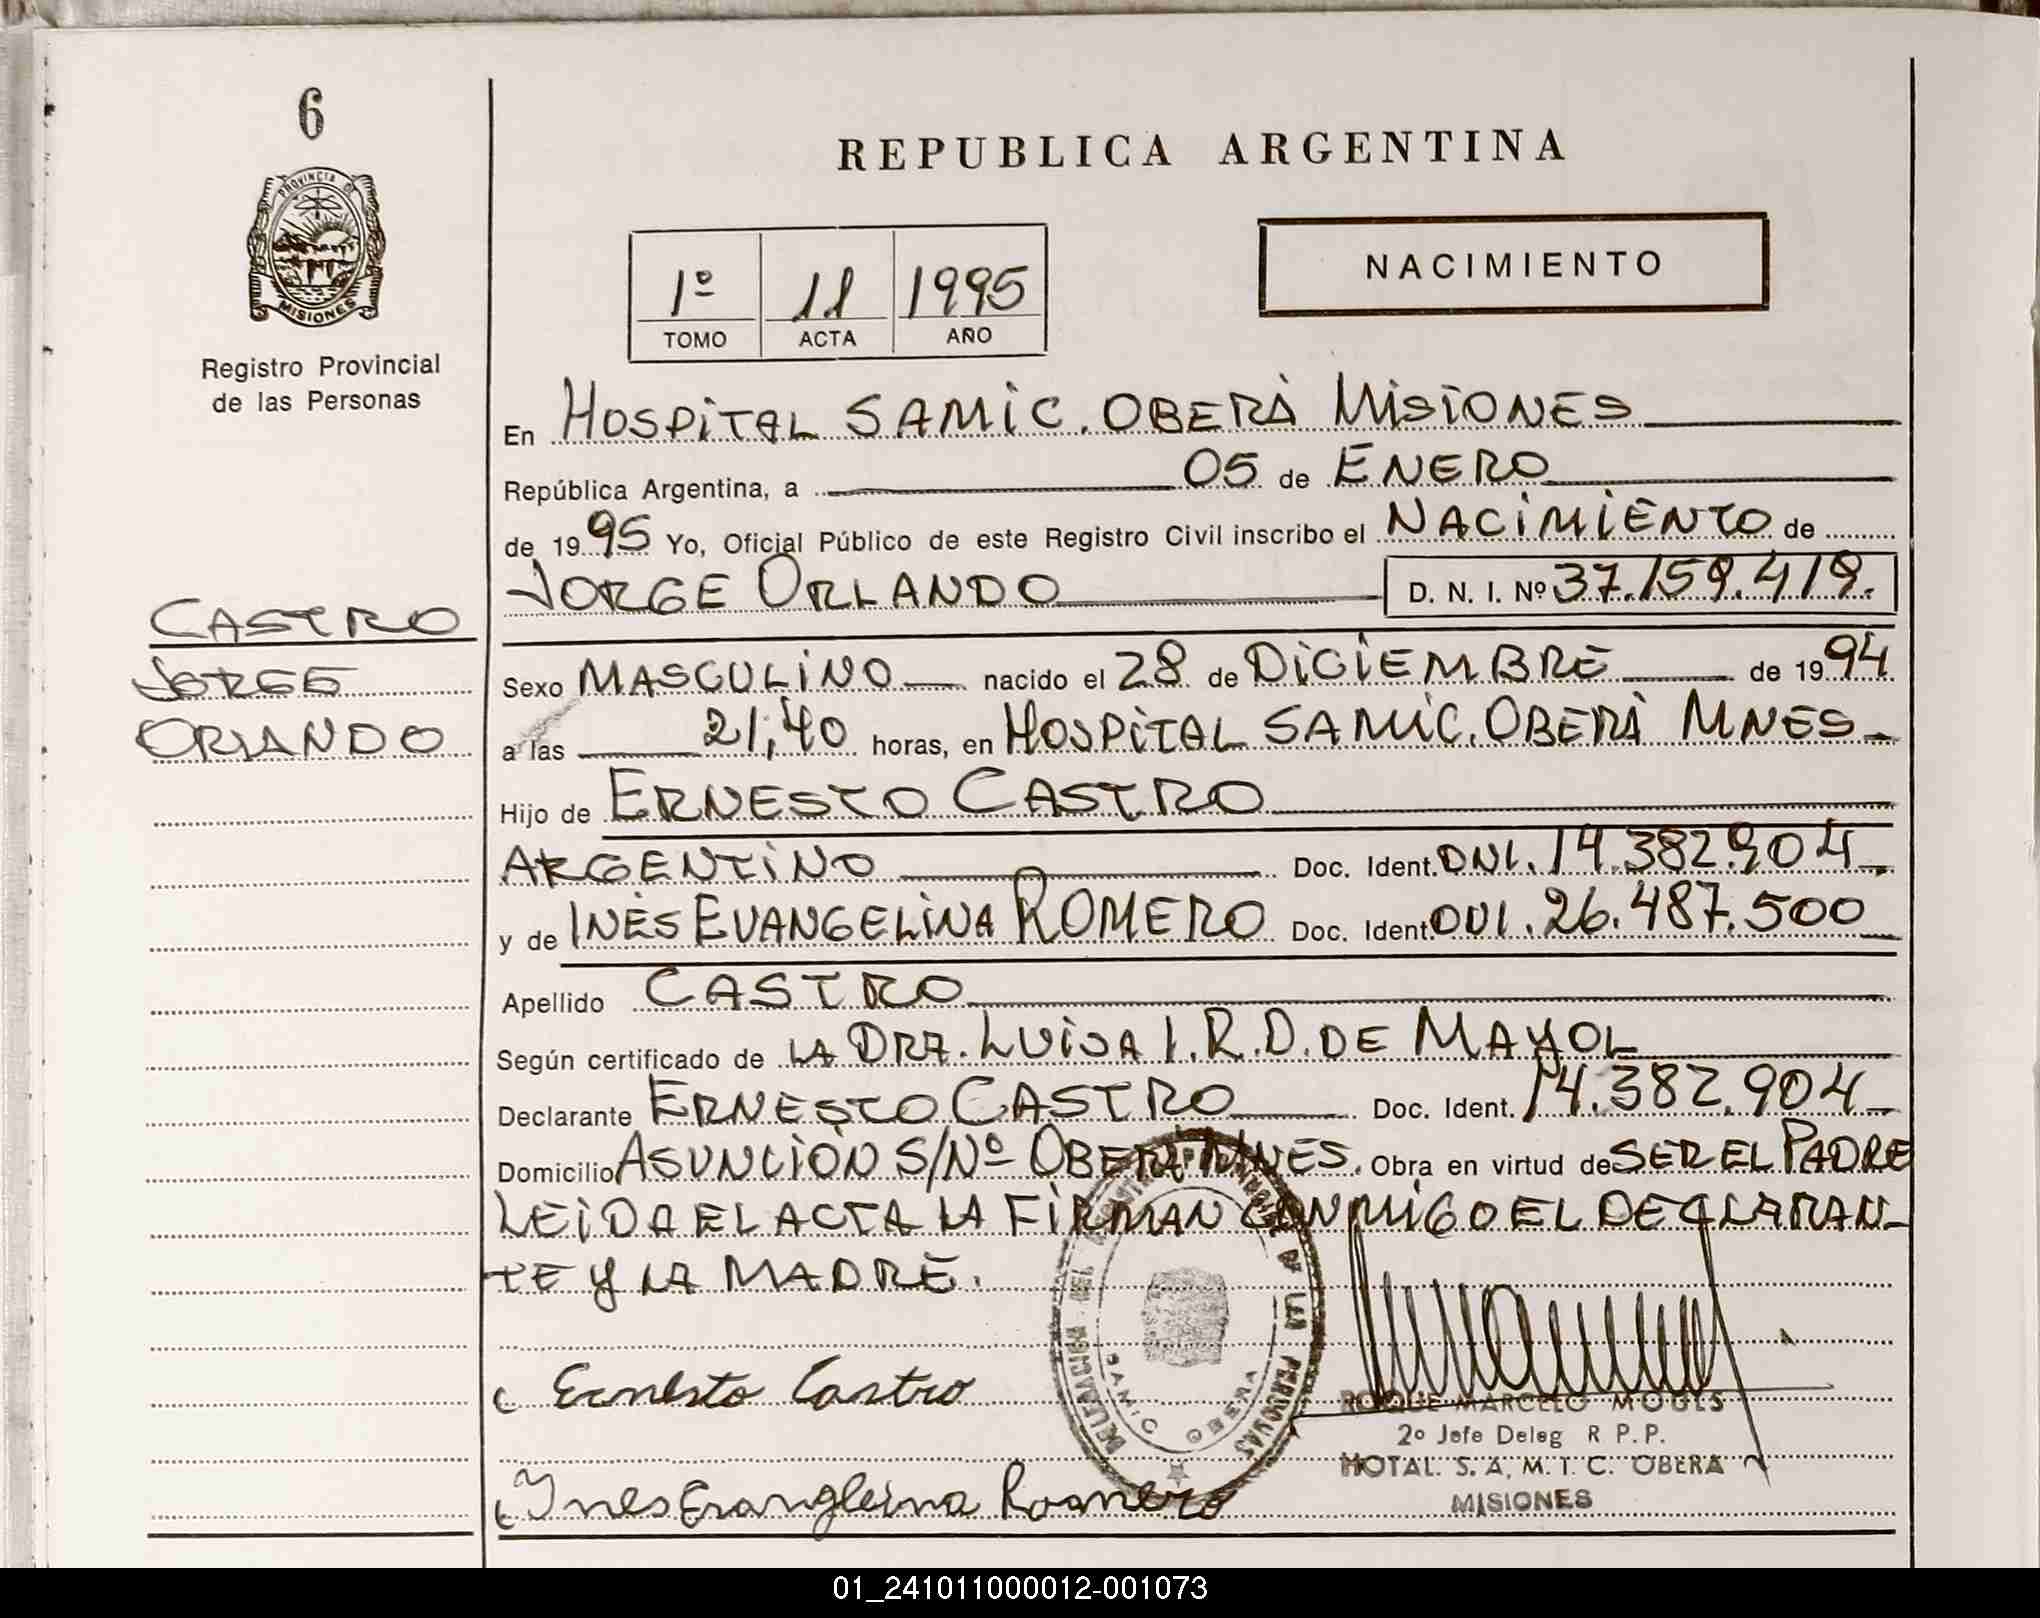 6
PROVINCIA DE
MISIONES
Registro Provincial
de las Personas
CASTRO
JORGE
ORLANDO
REPUBLICA ARGENTINA
1º 11 1995
TOMO ACTA AÑO
NACIMIENTO
En HOSPITAL SAMIC. OBERÁ MISIONES
República Argentina, a 05 de ENERO
de 1995 Yo, Oficial Público de este Registro Civil inscribo el NACIMIENTO de
JORGE ORLANDO D. N. I. Nº 37.159.419.
Sexo MASCULINO nacido el 28 de DICIEMBRE de 1994
a las 21,40 horas, en HOSPITAL SAMIC. OBERÁ MNES
Hijo de ERNESTO CASTRO
ARGENTINO Doc. Ident. DNI. 14.382.904
y de INÉS EVANGELINA ROMERO Doc. Ident. DNI. 26.487.500
Apellido CASTRO
Según certificado de LA DRA. LUISA I. R. D. DE MAYOL
Declarante ERNESTO CASTRO Doc. Ident. 14.382.904
Domicilio ASUNCIÓN S/Nº OBERÁ MNES. Obra en virtud de SER EL PADRE
LEIDA EL ACTA LA FIRMAN CONMIGO EL DECLARAN-
TE Y LA MADRE.
DELEGACION DEL REGISTRO PROVINCIAL DE LAS PERSONAS
SAMIC OBERA
Ernesto Castro
ROQUE MARCELO
2º Jefe Deleg R P. P.
HOTAL. S. A. M. I. C. OBERA
MISIONES
Ynes Evangleina Romero
01_241011000012-001073